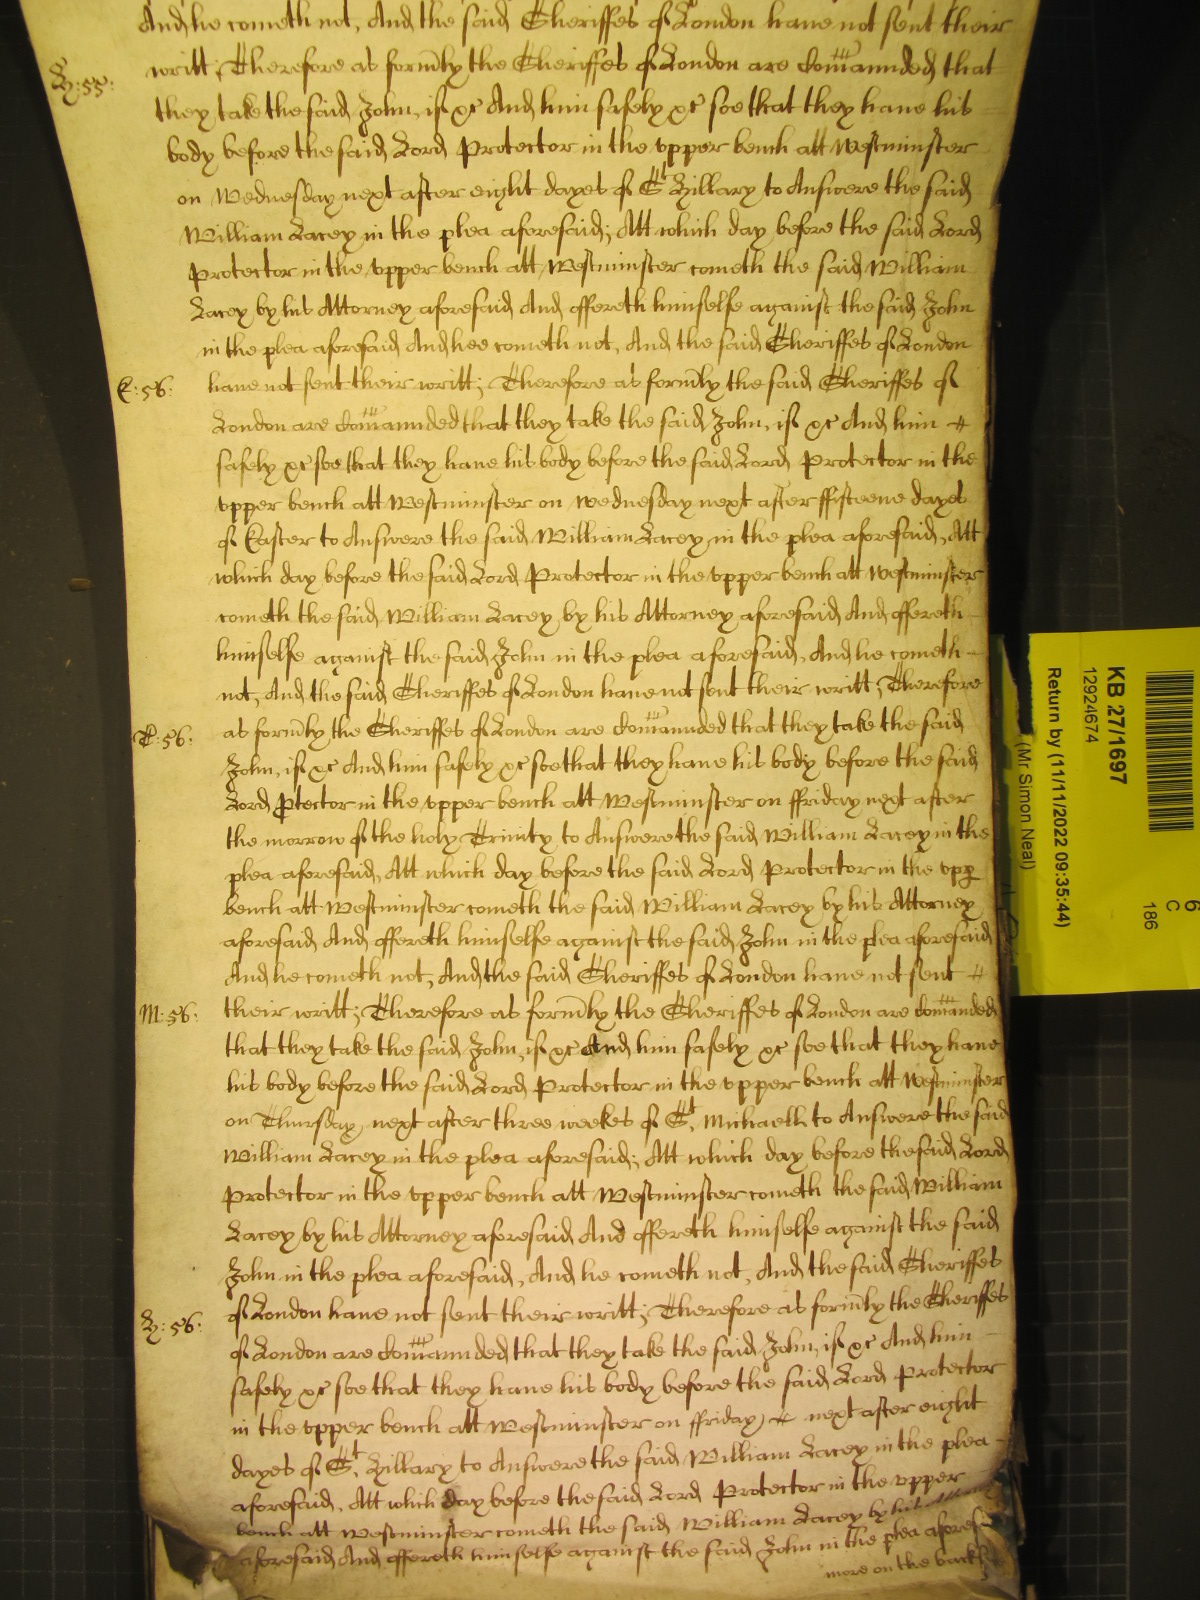 And he cometh not, And the said Sheriffes of London have not sent their
H: 55: writt; Therefore as form̄ly the Sheriffes of London are Com̄aunded that
they take the said John, if &c And him safely &c soe that they have his
body before the said Lord Protector in the vpper bench att Westminster
on Wednesday next after eight dayes of St Hillary to Answere the said
William Lacey in the plea aforesaid; Att which day before the said Lord
Protector in the vpper bench att Westminster cometh the said William
Lacey by his Attorney aforesaid And offereth himselfe against the said John
in the plea aforesaid And hee cometh not, And the said Sheriffes of London
E: 56: have not sent their writt; Therefore as form̄ly the said Sheriffes of
London are Com̄aunded that they take the said John, if &c And him
safely &c soe that they have his body before the said Lord Protector in the
vpper bench att Westminster on Wednesday next after ffifteene dayes
of Easter to Answere the said William Lacey in the plea aforesaid, Att
which day before the said Lord Protector in the vpper bench att Westminster
cometh the said William Lacey by his Attorney aforesaid And offereth
himselfe against the said John in the plea aforesaid, And he cometh
not, And the said Sheriffes of London have not sent their writt; Therefore
T: 56: as form̄ly the Sheriffes of London are Com̄aunded that they take the said
John, if &c And him safely &c soe that they have his body before the said
Lord P̱tector in the vpper bench att Westminster on ffriday next after
the morrow of the holy Trinity to Answere the said William Lacey in the
plea aforesaid, Att which day before the said Lord Protector in the vpp̱
bench att Westminster cometh the said William Lacey by his Attorney
aforesaid And offereth himselfe against the said John in the plea aforesaid
And he cometh not, And the said Sheriffes of London have not sent
M: 56: their writt; Therefore as form̄ly the Sheriffes of London are Com̄anded
that they take the said John, if &c And him safely &c soe that they have
his body before the said Lord Protector in the vpper bench att Westminster
on Thursday next after three weekes of St. Michaell to Answere the said
William Lacey in the plea aforesaid; Att which day before the said Lord
Protector in the vpper bench att Westminster cometh the said William
Lacey by his Attorney aforesaid And offereth himselfe against the said
John in the plea aforesaid, And he cometh not, And the said Sheriffes
H: 56: of London have not sent their writt; Therefore as form̄ly the Sheriffes
of London are Com̄aunded that they take the said John, if &c And him
safely &c soe that they have his body before the said Lord Protector
in the vpper bench att Westminster on ffriday next after eight
dayes of St. Hillary to Answere the said William Lacey in the plea
aforesaid, Att which day before the said Lord Protector in the vpper
bench att Westminster cometh the said William Lacey by his Attorney
aforesaid And offereth himselfe against the said John in the plea aforesd
more on the backs
KB 27/1697
12924674
Return by (11/11/2022 09:35:44)
(Mr Simon Neal)
6
C
186